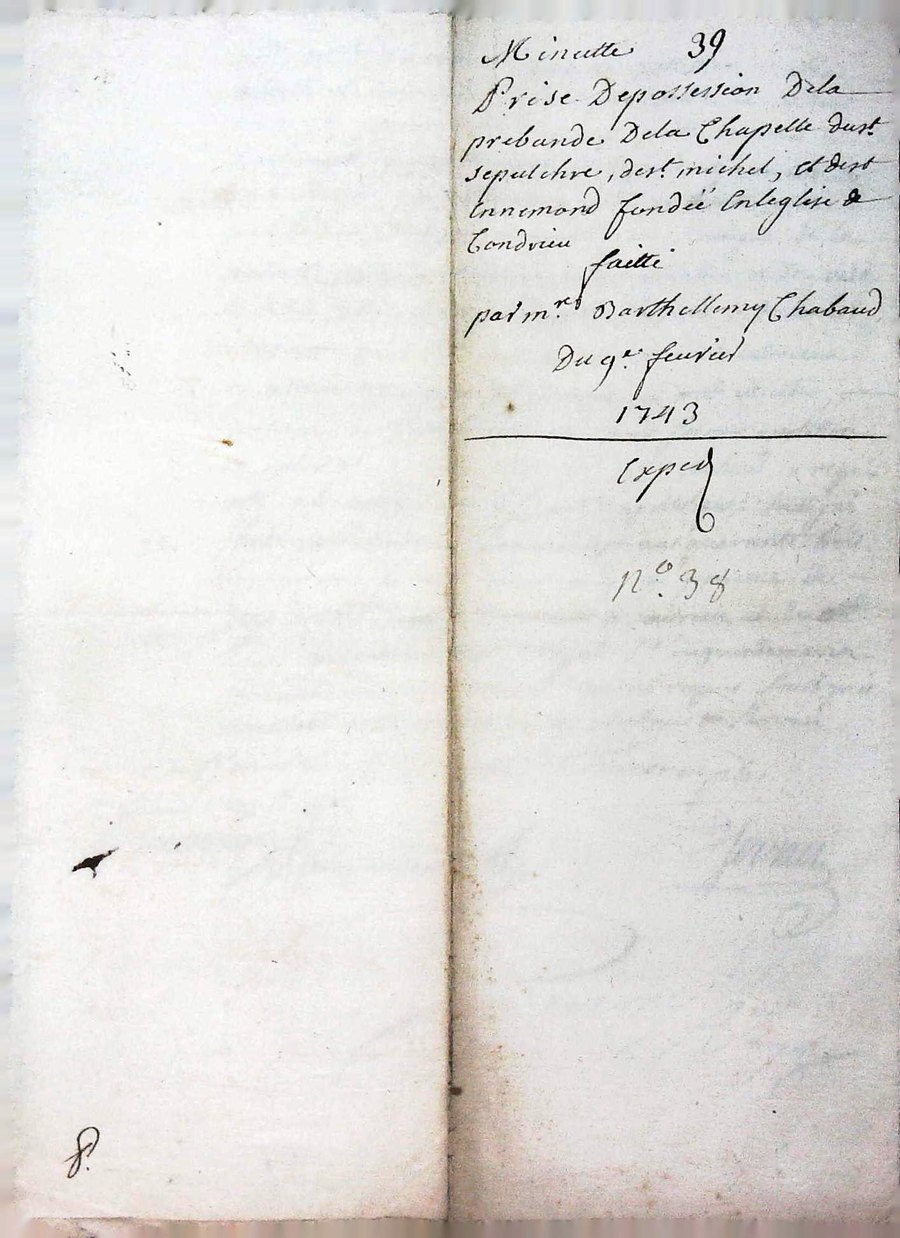 Minutte 39
Prise Depossession Dela
prebande Dela Chapelle dust
sepulchre, dest michel, et dest
Ennemond fondeë Enleglise de
Condrieu
faitte
par mre Barthellemy Chabaud
Du 9e feurier
1743
Exped
no. 38